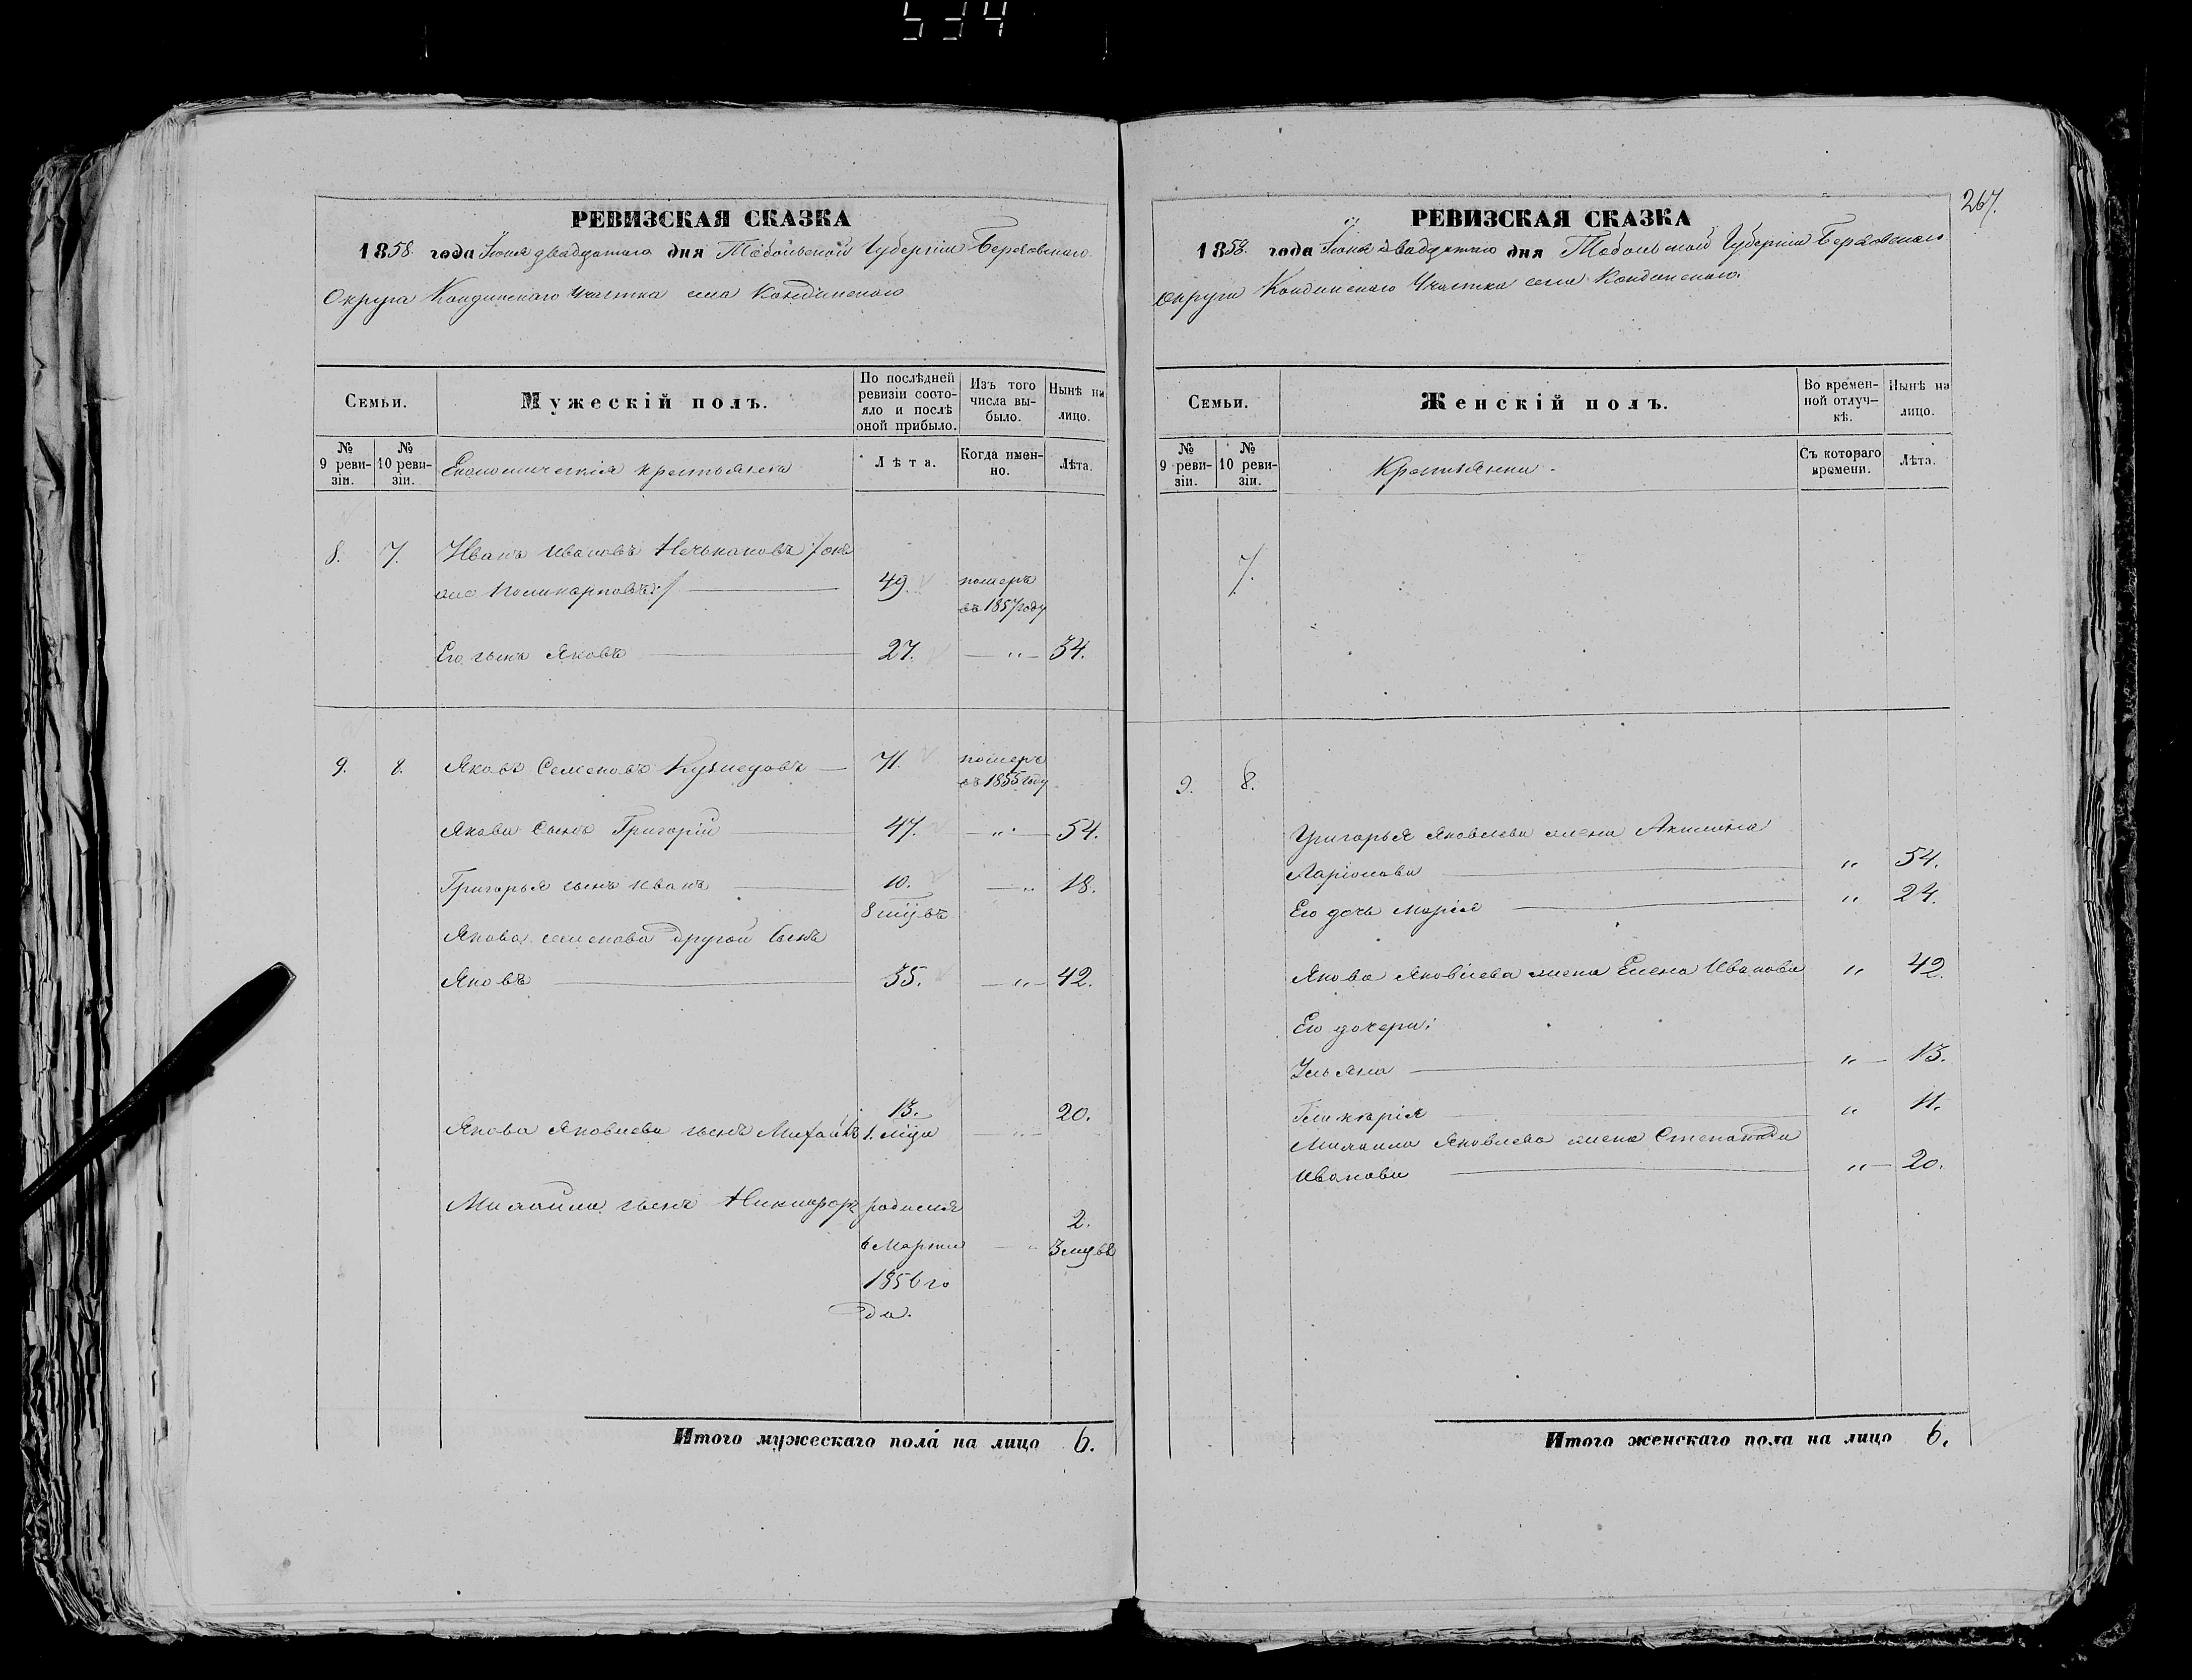 534
267.
РЕВИЗСКАЯ СКАЗКА
1858 года Іюня двадцатаго дня Тобольской Губерніи Березовскаго
Округа Кондинскаго Участка села Кондинскаго
Семьи.
Мужескій полъ.
По послѣдней ревизіи состояло и послѣ оной прибыло.
Изъ того числа выбыло.
Нынѣ на лицо.
№ 9 ревизіи.
№ 10 ревизіи.
Економическія крестьяна
Лѣта.
Когда именно.
Лѣта.
8. 7. Иванъ Ивановъ Нечкановъ /онъ
же Поликарповъ/ 49. померъ
въ 1857 году
Его сынъ Яковъ 27. " 34.
9. 8. Яковъ Семеновъ Кузнецовъ 71. померъ
въ 1855 году
Якова сынъ Григорій 47. " 54.
Григорья сынъ Иванъ 10. " 18.
8 мцъвъ
Якова Семенова другой сынъ
Яковъ 35. " 42.
13. 20.
Якова Яковлева сынъ Михайло 1. мца "
Михайла сынъ Никифоръ родился 2.
6 Марта " 3 мцвъ
1856 го
да.
Итого мужескаго пола на лицо 6.
РЕВИЗСКАЯ СКАЗКА
1858 года Іюня двадцатаго дня Тобольской Губерніи Березовскаго
Округа Кондинскаго Участка села Кондинскаго
Семьи.
Женскій полъ.
Во временной отлучкѣ.
Нынѣ на лицо.
№ 9 ревизіи.
№ 10 ревизіи.
Крестьянки.
Съ котораго времени.
Лѣта.
7.
9. 8.
Григорья Яковлева жена Акилина
Ларіонова " 54.
Его дочь Марія " 24.
Якова Яковлева жена Елена Иванова " 42.
Его дочери:
Ульяна " 13.
Гликерія " 11.
Михаила Яковлева жена Степанида
Иванова " 20.
Итого женскаго пола на лицо 6.